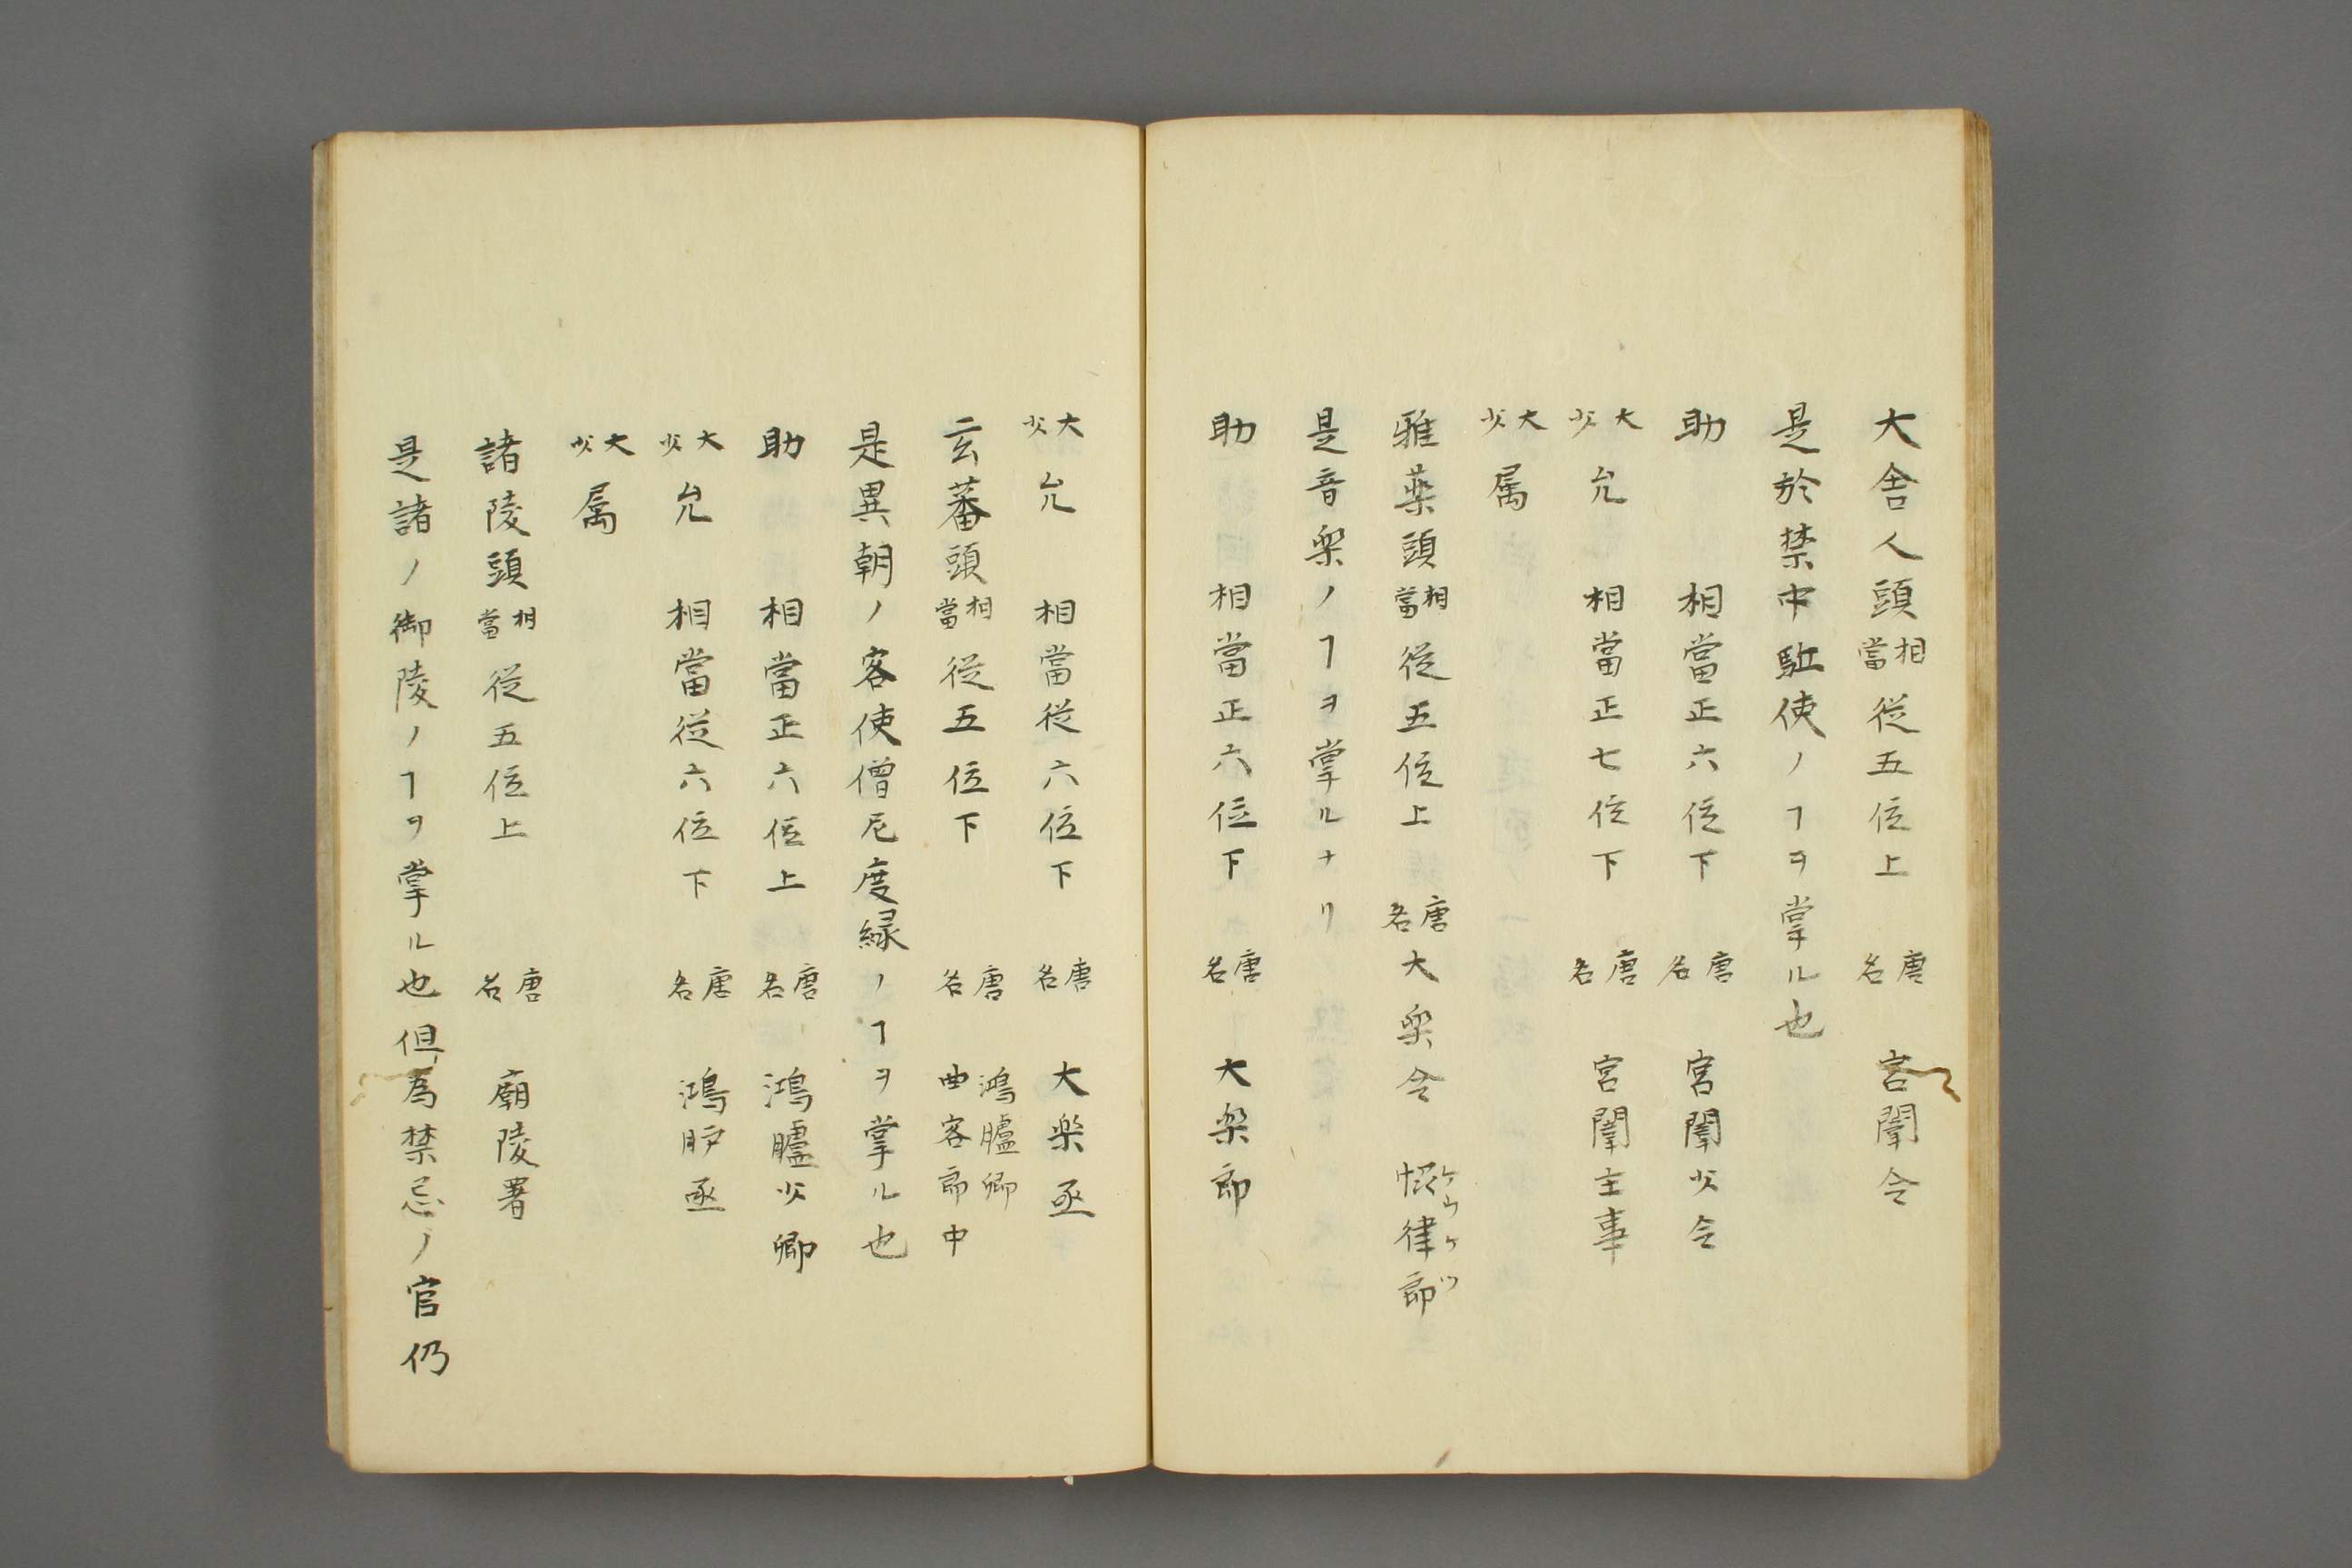 大舎人頭相當従五位上 唐名 宮闈令
是於禁中駈使ノヿヲ掌ル也
助 相當正六位下 唐名 宮闈少令
大少允 相當正七位下 唐名 宮闈主事
大少属
雅楽頭相當従五位上 唐名大樂令 律郎
是音樂ノヿヲ掌ルナリ
助 相當正六位下 唐名 大樂郎
大少允 相當従六位下 唐名 大樂丞
玄蕃頭相當従五位下 唐名 鴻臚卿 曲客郎中
是異朝ノ客使僧尼度縁ノヿヲ掌ル也
助 相當正六位上 唐名 鴻臚少卿
大少允 相當従六位下 唐名 鴻丞
大少属
諸陵頭相當従五位上 唐名 廟陵署
是諸ノ御陵ノヿヲ掌ル也但為禁忌ノ官仍